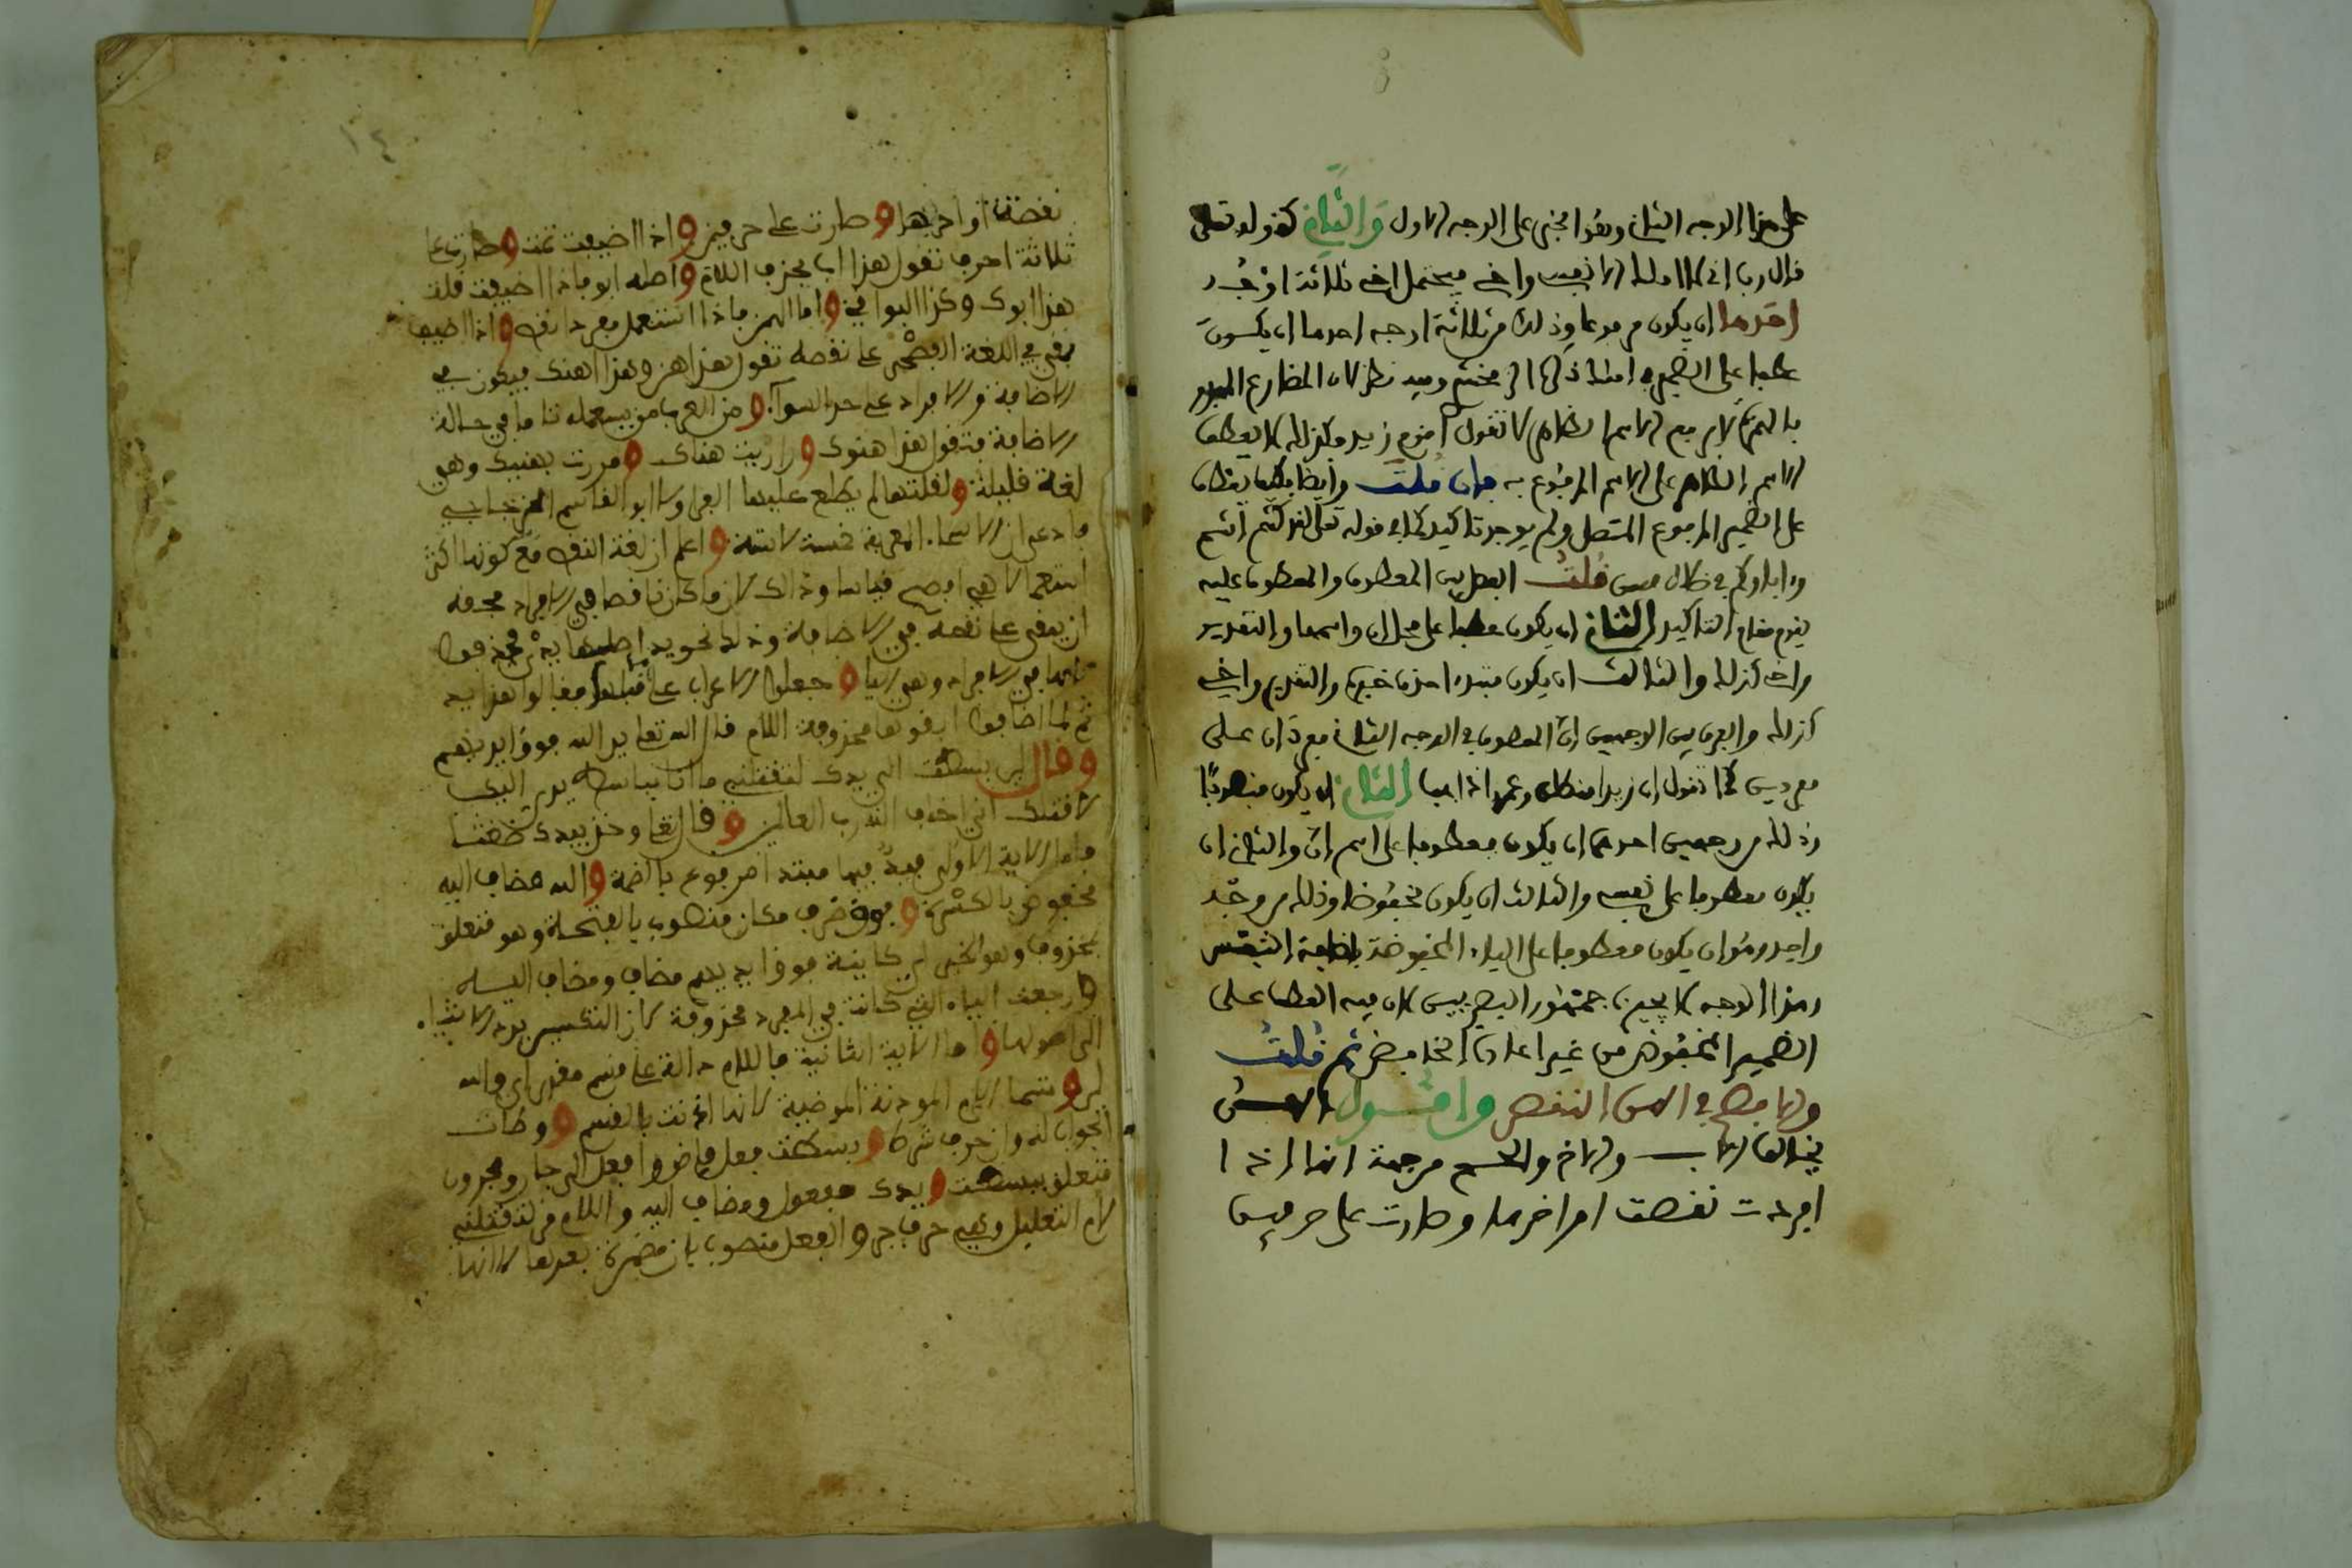 على هذا الوجه الثاني وهو مبني على الوجه الاول والثاني كقوله تعلى
قال رب اني لا املك الا نفسي واخي فيحتمل اخي ثلاثة اوجه
احدها ان يكون مرفوعا وذلك من ثلاثة اوجه احدها ان يكون
عطفا على الضمير في املك ذكره الزمخشري وفيه نظر لان المضارع المبدو
بالهمزة لا يرفع الاسم الظاهر لا تقول اقوم زيد فكذلك لا يعطف
الاسم الظاهر على الاسم المرفوع به فان قلت وايضا فكيف يعطف
على الضمير المرفوع المتصل ولم يوجد تاكيد كما في قوله تعلى لقد كنتم انتم
وءاباؤكم في ضلال مبين قلت الفصل بين المعطوف والمعطوف عليه
يقوم مقام التاكيد الثاني ان يكون عطفا على محل ان واسمها والتقدير
واخي كذلك والثالث ان يكون مبتدءا حذف خبره والتقدير واخي
كذلك والفرق بين الوجهين ان المعطوف في الوجه الثاني مفردان على
مفردين كما تقول ان زيدا منطلق وعمرا ذاهب الثاني ان يكون منصوبا
وذلك من وجهين احدهما ان يكون معطوفا على اسم ان والثاني ان
يكون معطوفا على نفسي والثالث ان يكون مخفوضا وذلك من وجه
واحد وهو ان يكون معطوفا على الياء المخفوضة باضافة النفس
وهذا الوجه لا يجيزه جمهور البصريين لان فيه العطف على
الضمير المخفوض من غير اعادة الخافض ثم قلت
والافصح في الهن النقص واقول الهن
يخالف الاب والاخ والحم من جهة انها اذا
افردت نقصت اواخرها وصارت على حرفين
نقصت اواخرها وصارت على حرفين واذا اضيفت تمت وصارت على
ثلاثة احرف تقول هذا اب بحذف اللام واصله ابو فاذا اضيفت قلت
هذا ابوك وكذا البواقي واما الهن فاذا استعمل مفردا نقص واذا اضيف
بقي في اللغة الفصحى على نقصه تقول هذا هن وهذا هنك فيكون في
الاضافة والافراد على حد السواء ومن العرب من يستعمله تاما في حالة
الاضافة فتقول هذا هنوك ورايت هناك ومررت بهنيك وهي
لغة قليلة ولقلتها لم يطلع عليها الفراء ولا ابو القاسم الزجاجي
فادعى ان الاسماء المعربة خمسة لا ستة واعلم ان لغة النقص مع كونها اكثر
استعمالا هي افصح قياسا وذالك لان ما كان ناقصا في الافراد فحقه
ان يبقى على نقصه في الاضافة وذلك نحو يد اصلها يدي فحذفوا
لامها في الافراد وهي الياء وجعلوا الاعراب على ما قبلها فقالوا هذا يد
ثم لما اضافوا ابقوها محذوفة اللام قال الله تعلى يد الله فوق ايديهم
وقال لين بسطت الي يدك لتقتلني ما انا بباسط يدي اليك
لاقتلك اني اخاف الله رب العالمين وقال تعلى وخذ بيدك ضغثا
فاما الاية الاولى فيد فيها مبتدا مرفوع بالضمة والله مضاف اليه
مخفوض بالكسرة وفوق ظرف مكان منصوب بالفتحة وهو متعلق
بمحذوف وهو الخبر اي كاينة فوق ايديهم مضاف ومضاف اليه
ورجعت الياء التي كانت في المفرد محذوفة لان التكسير يرد الاشياء
الى اصولها واما الاية الثانية فاللام دالة على قسم مقدر اي والله
لين وتسمى اللام الموذنة الموطية لانها اذنت بالقسم ووطات
الجواب له وان حرف شرط وبسطت فعل ماض وفاعل الي جار ومجرور
متعلق ببسطت ويدك مفعول ومضاف اليه واللام في لتقتلني
لام التعليل وهي حرف جر والفعل منصوب بان مضمرة بعدها لا انها